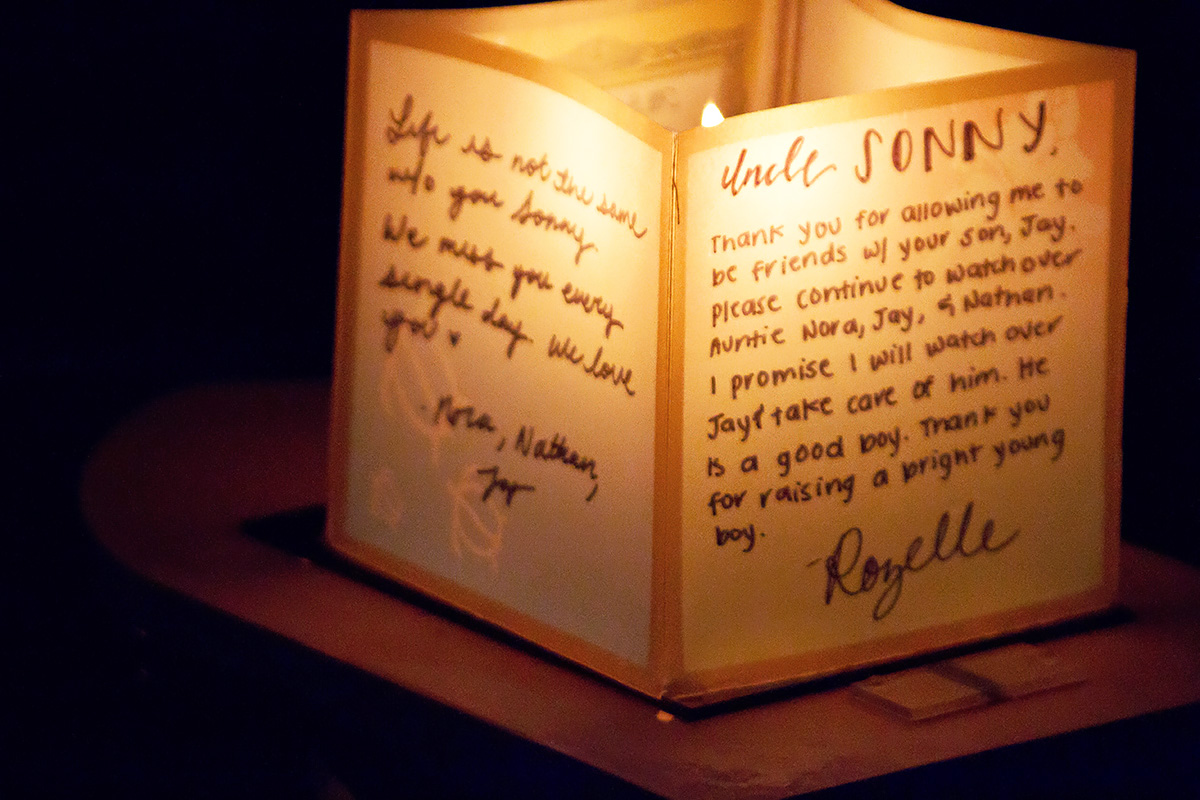 Life is not the same
w/o you Sonny
We miss you every
single day. We love
you ♥
- Nora, Nathan,
Jay
Uncle SONNY,
Thank you for allowing me to
be friends w/ your son, Jay.
please continue to watch over
Auntie Nora, Jay, & Nathan.
I promise I will watch over
Jay & take care of him. He
is a good boy. Thank you
for raising a bright young
boy.
- Rozelle